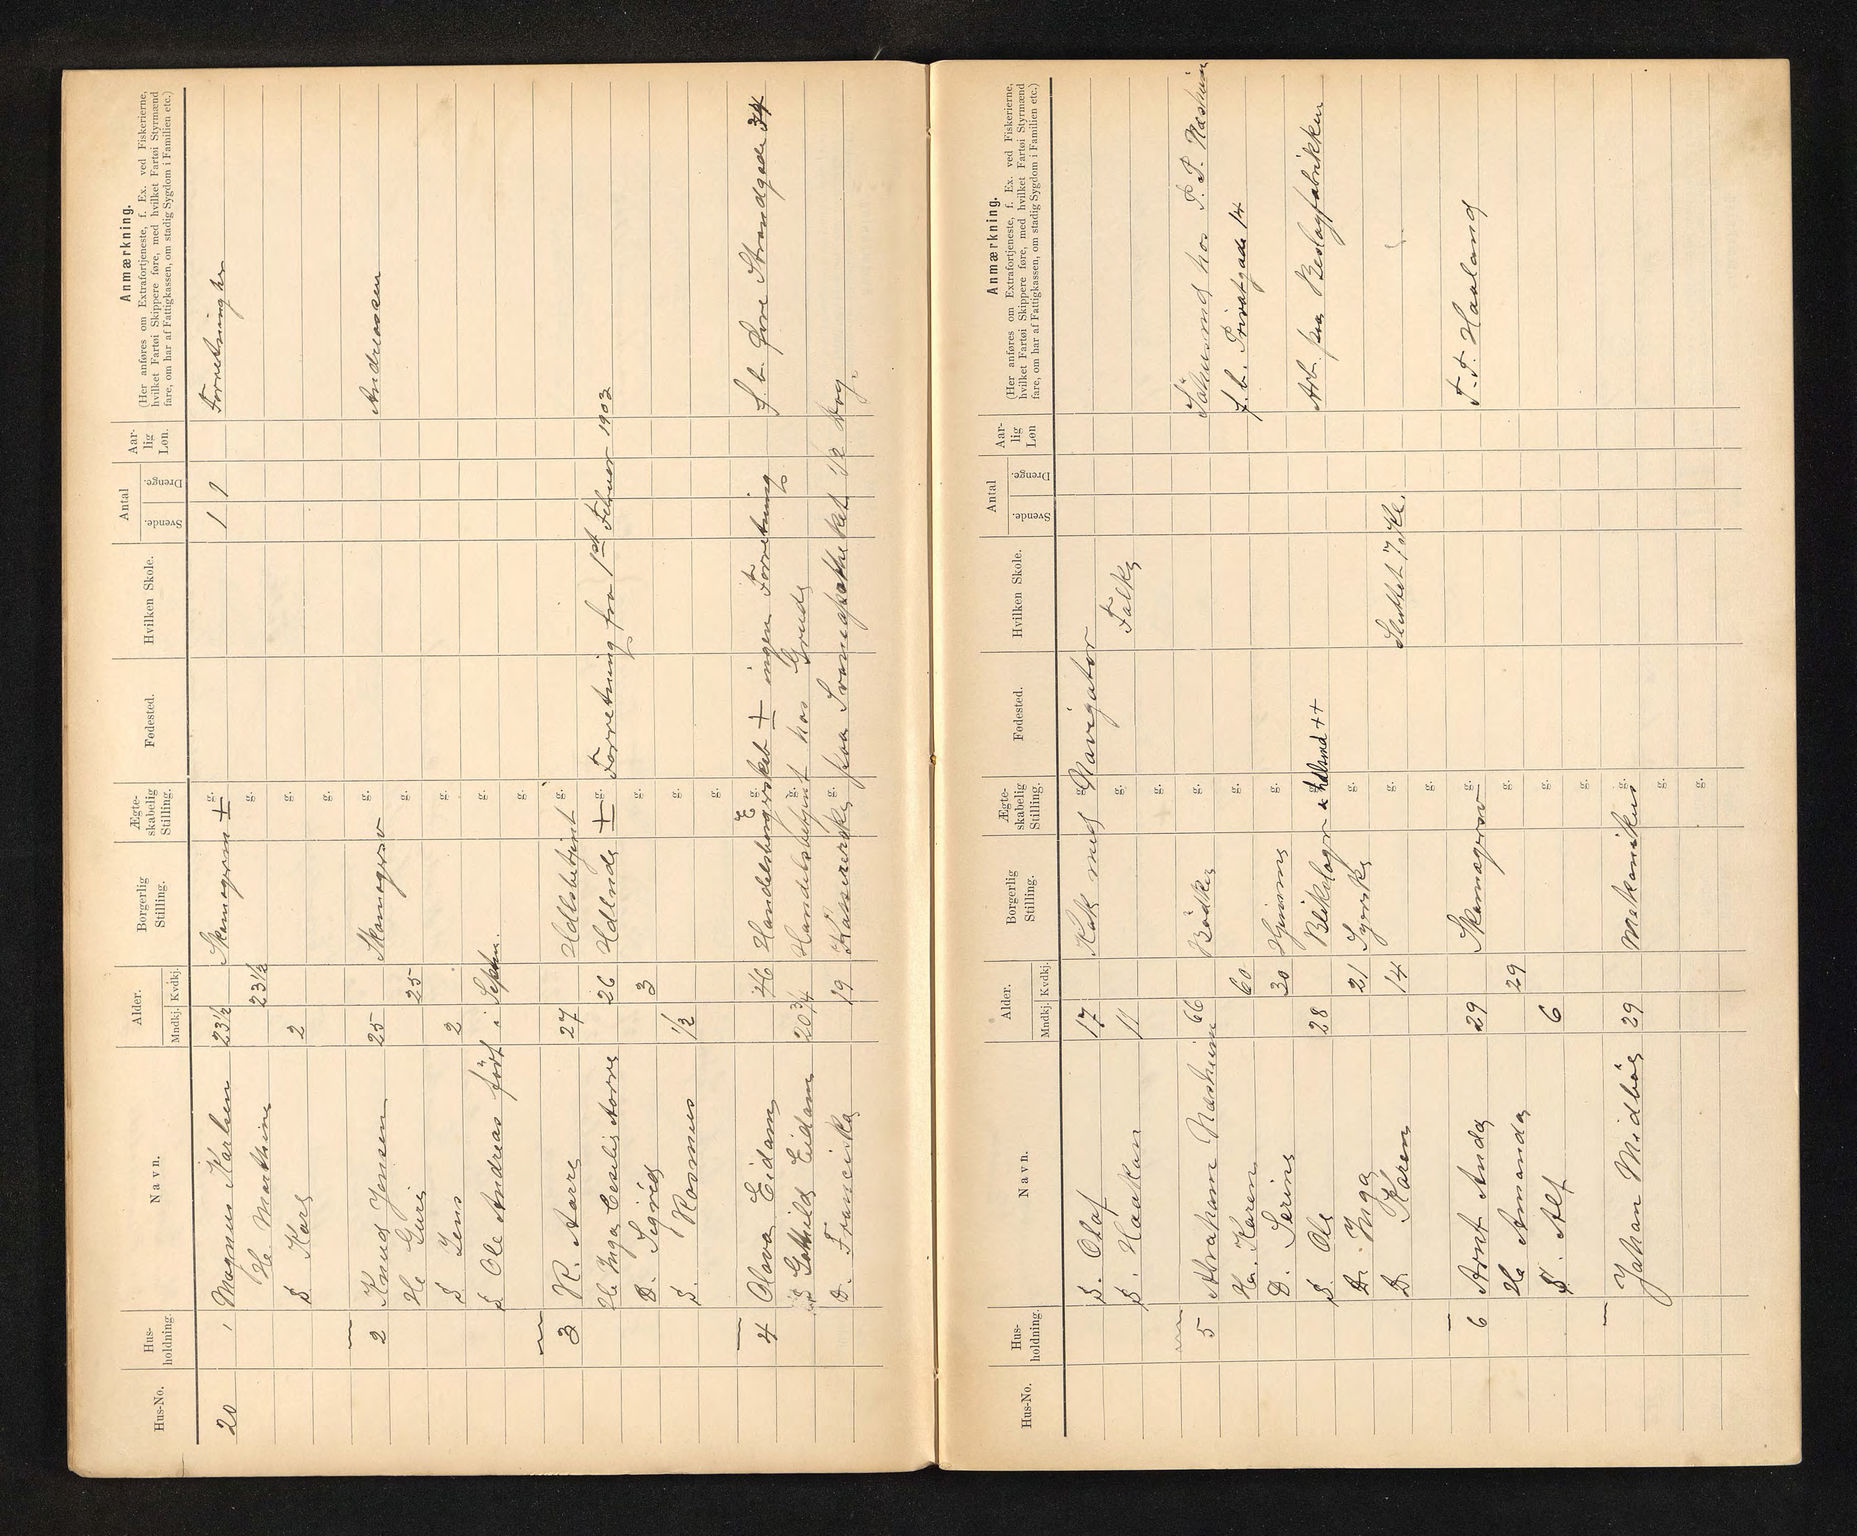 Hus-No.
Hus-
holdning.
Navn.
Alder.
Mndkj.
Kvdkj.
Borgerlig
Stilling.
Ægte-
skabelig
Stilling.
Fødested.
Hvilken Skole.
Antal
Svende.
Drenge.
Aar-
lig
Løn.
Anmærkning.
(Her anføres om Extrafortjeneste, f. Ex. ved Fiskerierne,
hvilket Fartøi Skippere føre, med hvilket Fartøi Styrmænd
fare, om har af Fattigkassen, om stadig Sygdom i Familien etc.)
20 1 Magnus Karlsen 23½ g. 1 1 Forretning her
Hu Marthine 23½ g.
S Karl 2 g.
g.
2 Knud Jensen 25 g. Andreassen
Hu Guri 25 g.
S Jens 2 g.
S Ole Andreas født i Septbr. g.
g.
3 R. Aarre 27 Hdlsbetjent g.
Hu Inga Cecilie Aarre 26 Hdlende g. Forretning fra 1st Februar 1903
D. Sigrid 3 g.
S. Rasmus ½ g.
g.
4 Olava Eidam 46 g. ingen Forretning f. b. Øvre Strandgade 34
Gothild Eidam 20¾ Handelsbetjent hos g.
D. Franciska 19 Kasserske g. paa Svaneapotheket
Hus-No.
Hus-
holdning.
Navn.
Alder.
Mndkj.
Kvdkj.
Borgerlig
Stilling.
Ægte-
skabelig
Stilling.
Fødested.
Hvilken Skole.
Antal
Svende.
Drenge.
Aar-
lig
Løn
Anmærkning.
(Her anføres om Extrafortjeneste, f. Ex. ved Fiskerierne,
hvilket Fartøi Skippere føre, med hvilket Fartøi Styrmænd
fare, om har af Fattigkassen, om stadig Sygdom i Familien etc.)
S. Olaf 17 Kok med g. Navigator
S. Haakon 11 g. Falk
g.
5 Abraham Næsheim 66 Bødker g. hos P. P. Næsheim
Hu. Karen 60 g. f. b. Privatgade 14
D. Serine 30 Hjemme g.
S. Ole 28 g. Arb. paa Beslagfabrikken
D. Inga 21 Syerske g.
D. Karen 14 g. Sluttet 7 Kl.
g.
6 Arnt Anda 29 Skomagersv g. T. T. Haaland
Hu Amanda 29 g.
S. Alf 6 g.
g.
Johan Midbøe 29 Mekanikus g.
g.
g.